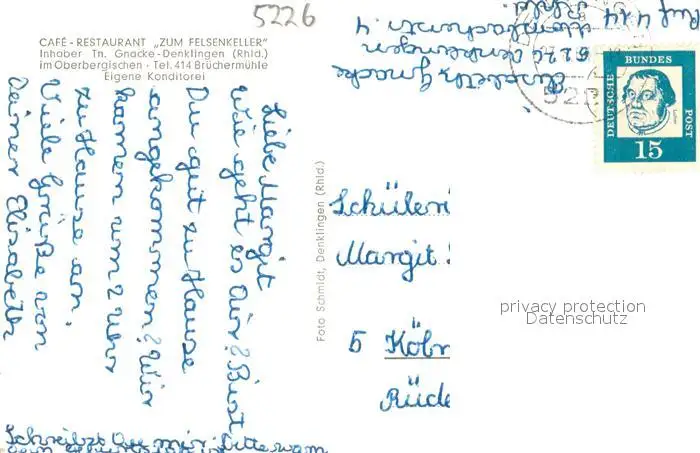 5226
CAFÉ - RESTAURANT „ZUM FELSENKELLER"
Inhaber Th. Gnacke - Denklingen (Rhld.)
im Oberbergischen · Tel. 414 Brüchermühle
Eigene Konditorei
Liebe Margit
wie geht es dir? Bist
Du gut zu Hause
angekommen? Wir
kamen um 2 Uhr
zu Hause an.
Viele Grüße von
Deiner Elisabeth
Schreibst Du mir bitte wann
dein
Foto Schmidt, Denklingen (Rhld.)
Elisabeth Gnacke
5226 Denklingen
Ruf 414
522
DEUTSCHE
BUNDES
POST
15
Schüleri
Margit
5 Köln
Rüde
privacy protection
Datenschutz